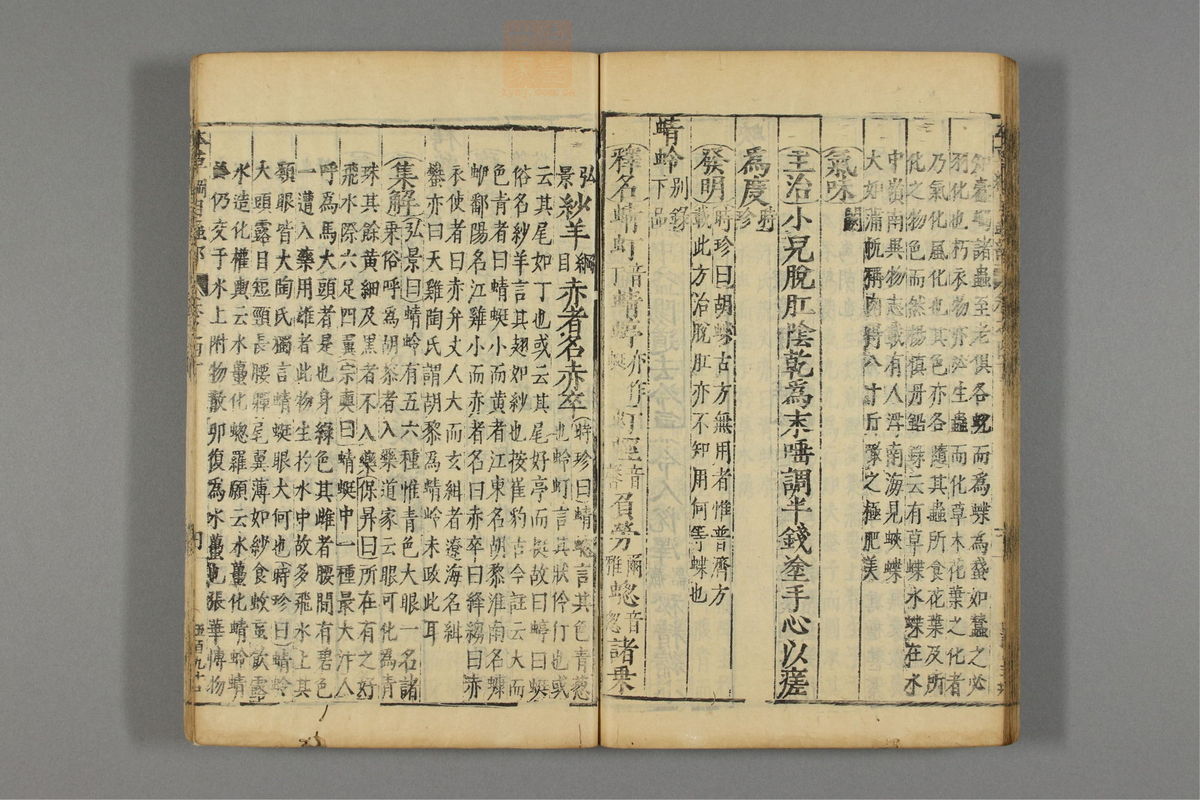 如䗽蠋諸蟲至老俱各蛻而為蝶為蛾如蠶之必
羽化也朽衣物亦必生蟲而化草木花葉之化者
乃氣化風化也其色亦各隨其蟲所食花葉及所
化之物色而然楊慎丹鉛錄云有草蝶水蝶在水
中嶺南異物志載有人浮南海見蛺蝶
大如蒲帆稱肉得八十斤噉之極肥美
氣味闕
主治小兒脫肛陰乾為末唾調半錢塗手心以瘥
為度時珍
發明時珍曰胡蝶古方無用者惟普濟方
載此方治脫肛亦不知用何等蝶也
蜻蛉別錄下品
釋名蜻虰音丁蜻蝏亦作蜓虰蛵音馨負勞爾雅蟌音怱諸乘
弘景紗羊綱目赤者名赤卒時珍曰蜻蟌言其色青葱
也蛉虰言其狀伶仃也或
云其尾如丁也或云其尾好亭而挺故曰蝏曰蜓
俗名紗羊言其翅如紗也按崔豹古今註云大而
色青者曰蜻蜓小而黃者江東名胡黎淮南名蠊
𧊅鄱陽名江雞小而赤者名曰赤卒曰絳縐曰赤
衣使者曰赤弁丈人大而玄紺者遼海名紺
蠜亦曰天雞陶氏謂胡黎為蜻蛉未政此耳
集解弘景曰蜻蛉有五六種惟青色大眼一名諸
乘俗呼為胡黎者入藥道家云眼可化為青
珠其餘黃細及黑者不入藥保昇曰所在有之好
飛水際六足四翼宗奭曰蜻蜓中一種最大汴人
呼為馬大頭者是也身綠色其雌者腰間有碧色
一遭入藥用雄者此物生於水中故多飛水上其
類眼皆大陶氏獨言蜻蜓眼大何也時珍曰蜻蛉
大頭露目短頸長腰軃尾翼薄如紗食蚊䖟飲露
水造化權輿云水蠆化蟌羅願云水蠆化蜻蛉蜻
蛉仍交于水上附物散卵復為水蠆也張華博物